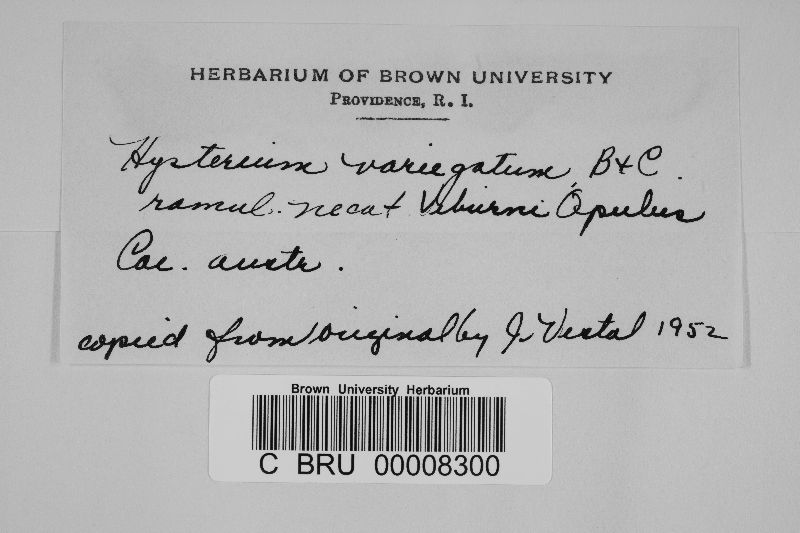 HERBARIUM OF BROWN UNIVERSITY
PROVIDENCE, R. I.
Hysterium variegatum, B & C.
ramul. necat Viburni Opulus
Car. austr.
copied from original by J. Vestal 1952
Brown University Herbarium
C BRU 00008300